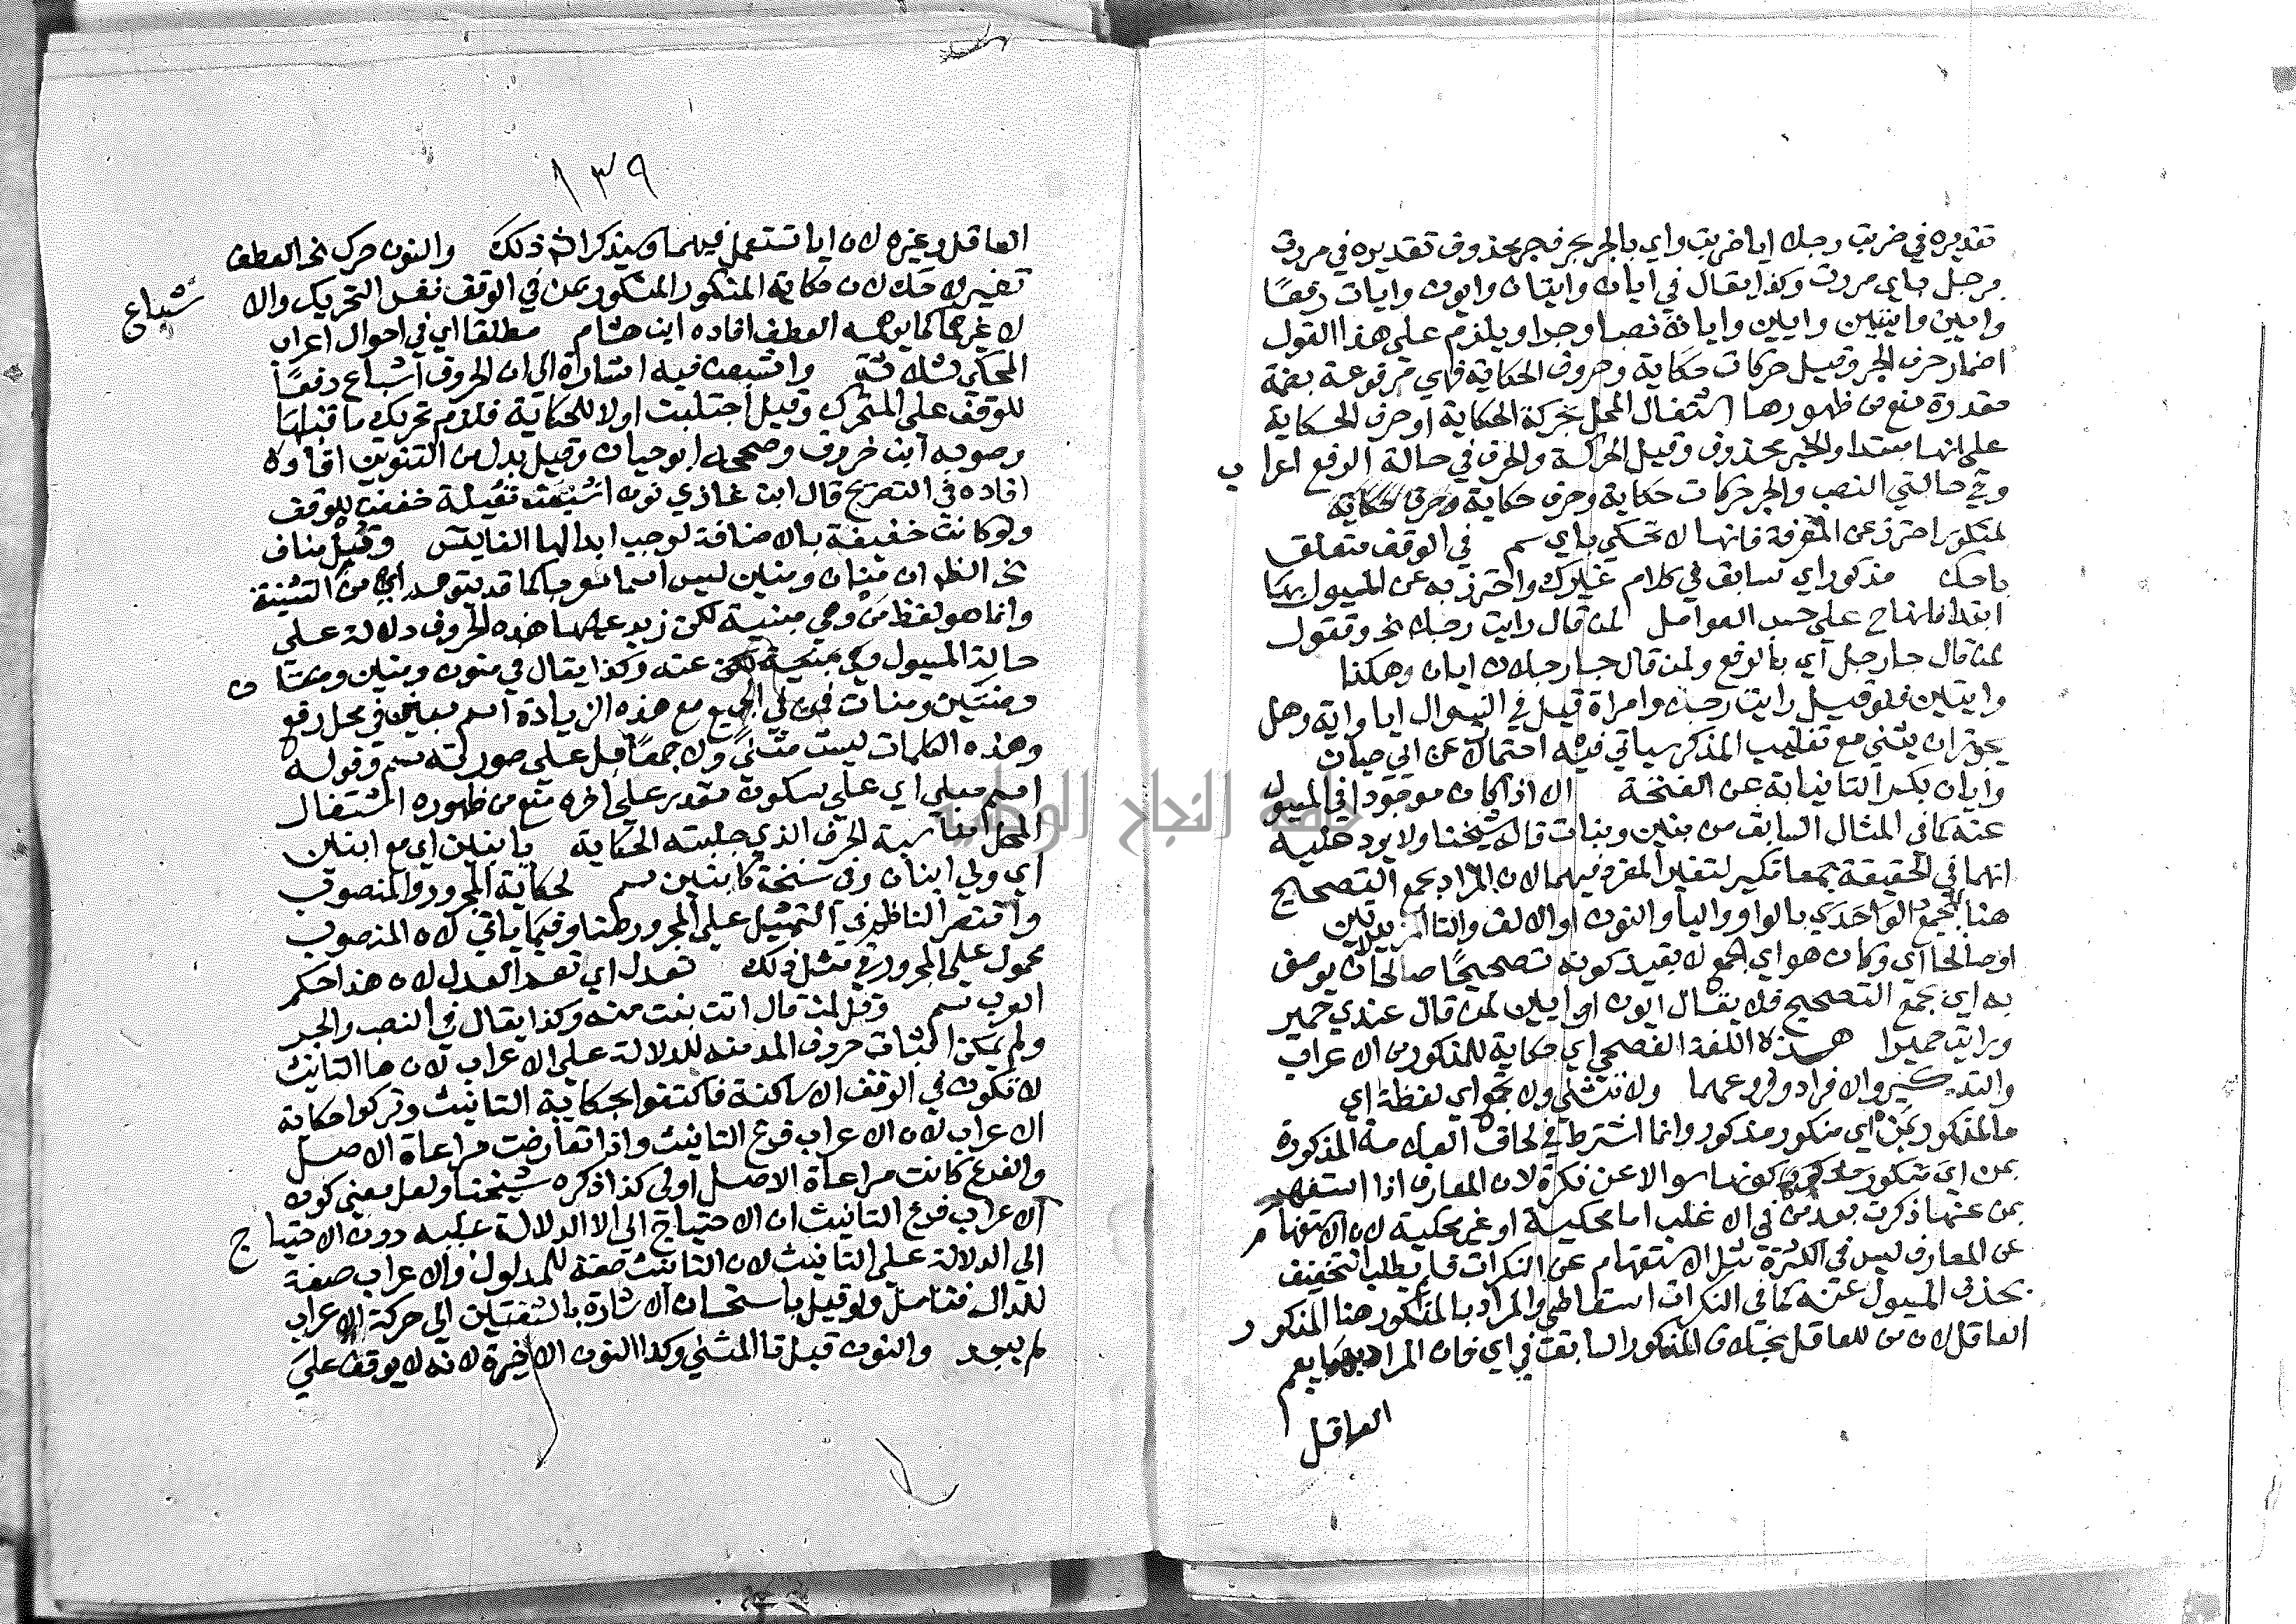 تقديره في ضربت رجلا ايا ضربت واي بالجر بحرف جر محذوف تقديره في مررت
برجل باي مررت وكذا يقال في ايان وايتان وايون وايات رفعًا
وايين وايتين وايين وايات نصبا وجرا ويلزم على هذا القول
اضمار حرف الجر وقيل حركات حكاية وحروف الحكاية فهي مرفوعة بضمة
مقدرة منع من ظهورها اشتغال المحل بحركة الحكاية او حرف الحكاية
على انها مبتدا والخبر محذوف وقيل الحركة والحرف في حالة الرفع اعراب
وفي حالتي النصب والجر حركات حكاية وحرف حكاية
لمنكور احترز عن المعرفة فانها لا تحكى باي سم في الوقف متعلق
باحك مذكور اي سابق في كلام غيرك واحترز به عن المسيول بها
ابتدا فانها على حسب العوامل لمن قال رايت رجلا نحو وتقول
لمن قال جا رجل اي بالرفع ولمن قال جا رجلان ايان وهكذا
وايتين فلو قيل رايت رجلا وامراة قيل في السوال ايا واية وهل
يجوز ان يثنى مع تغليب المذكر سياتي فيه احتمال عن ابي حيان
وايات بكسر التا نيابة عن الفتحة الا اذا كان موجودا في المسيول
عنه كما في المثال السابق من بنين وبنات قال شيخنا ولا يرد عليه
انهما في الحقيقة جمعا تكسير لتغير المفرد فيهما لان المراد بجمع التصحيح
هنا الجمع بالواو واليا والنون او الالف والتا المزيدتين
او صالحا اي وكان هو اي الجمع لا بقيد كونه تصحيحًا صالحا لان يوصف
به اي بجمع التصحيح فلا يقال ايون او ايين لمن قال عندي حمير
ورايت حميرا هذه اللغة الفصحى اي حكاية للمنكور من الاعراب
والتذكير والافراد وفروعهما ولا تثنى ولا تجمع اي لفظة اي
ما لمنكور بمن اي منكور مذكور وانما اشترط في لحاق العلامة المذكورة
بمن اي كونها سوالا عن نكرة لان المعارف اذا استفهم
بمن عنها ذكرت بعد من في الاغلب اما محكية او غير محكية لان الاستفهام
عن المعارف ليس في الكثرة مثل الاستفهام عن النكرات فلم يطلب التخفيف
بحذف المسيول عنه كما في النكرات اسقاطي والمراد بالمنكور هنا المنكور
العاقل لان من للعاقل بخلاف المنكور السابق في اي فان المراد به ما يعم
العاقل
١٣٩
العاقل وغيره لان ايا تستعمل فيهما وسيذكر الش ذلك والنون حرك نحو العطف
تفسير لاحك لان حكاية المنكور المسكور بمن في الوقف نفس التحريك والاشباع
لا غيرهما كما يوهمه العطف افاده ابن هشام مطلقا اي في احوال اعراب
المحكي الثلاثة واشبعن فيه اشارة الى ان الحروف اشباع دفعًا
للوقف على المتحرك وقيل اجتلبت اولا للحكاية فلزم تحريك ما قبلها
وصوبه ابن خروف وصححه ابو حيان وقيل بدل من التنوين
افاده في التصريح قال ابن غازي نون اشبعن ثقيلة خففت للوقف
ولو كانت خفيفة بالاصالة لوجب ابدالها الفا يس وقيل منان
نحو النظر ان منان ومنين ليس اسما معربا كما قد يتوهم من التثنية
وانما هو لفظ من وهي مبنية لكن زيد عليها هذه الحروف دلالة على
حالة المسيول عنه وكذا يقال في منون ومنين ومنتان
ومنتين ومنات فمن في الجميع مع هذه الزيادة اسم مبني في محل رفع
وهذه الكلمات ليست مثنى ولا جمعًا بل على صورته سم وقوله
اسم مبني اي على سكون مقدر على اخره منع من ظهوره اشتغال
المحل بمناسبة الحرف الذي جلبته الحكاية بابنين اي مع ابنين
اي ولي ابنان وفي نسخة كابنين سم لحكاية المجرور والمنصوب
واقتصر الناظم في التمثيل على المجرور هنا وفيما ياتي لان المنصوب
محمول على المجرور في مثل ذلك تعدل اي تعد العدل لان هذا حكم
العرب سم وقل لمن قال اتت بنت منه وكذا يقال في النصب والجر
ولم يمكن اثبات حروف المد منه للدلالة على الاعراب لان ها التانيث
لا تكون في الوقف الا ساكنة فاكتفوا بحكاية التانيث وتركوا حكاية
الاعراب لان الاعراب فرع التانيث واذا تعارضت مراعاة الاصل
والفرع كانت مراعاة الاصل اولى كذا ذكره شيخنا ولعل معنى كون
الاعراب فرع التانيث ان الاحتياج الى الدلالة عليه دون الاحتياج
الى الدلالة على التانيث لان التانيث صفة للمدلول والاعراب صفة
للدال فتامل ولو قيل باستحسان الاشارة بالشفتين الى حركة الاعراب
لم يبعد والنون قبل تا المثنى وكذا النون الاخيرة لانه لا يوقف على
جامعة النجاح الوطنية